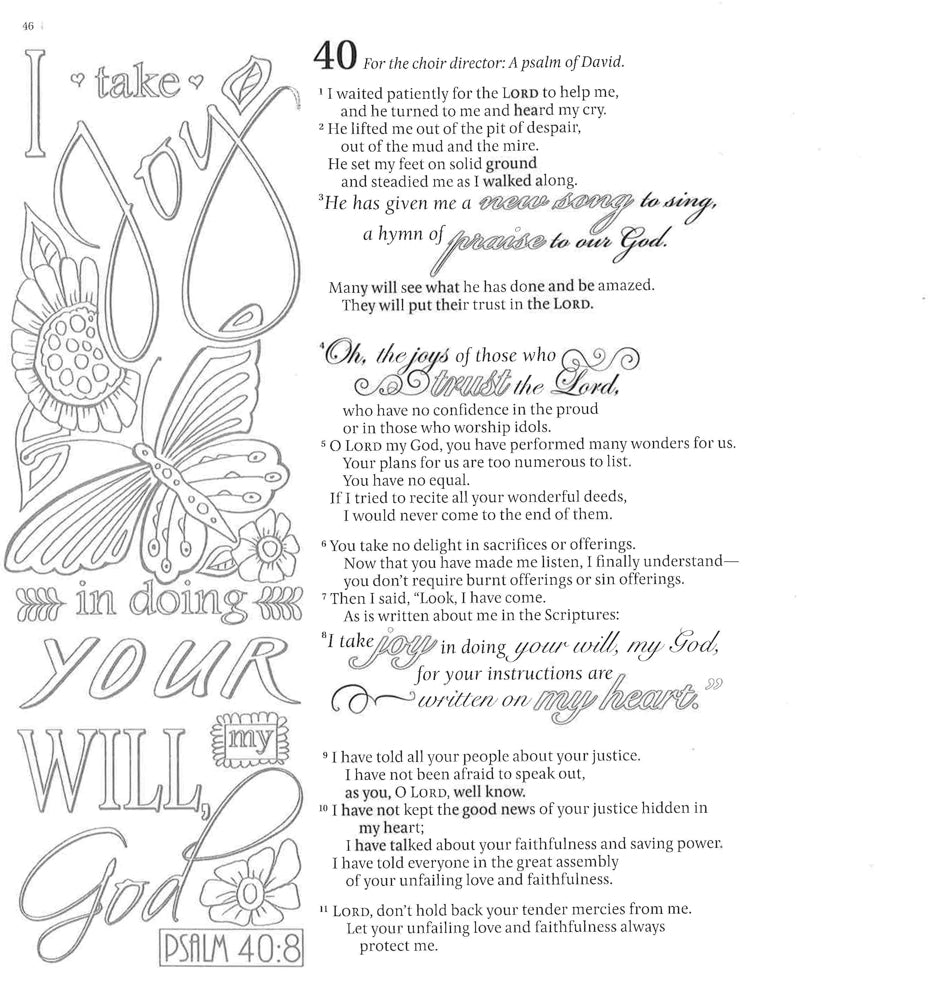 46
I take
joy
in doing
YOUR
WILL,
my
God
PSALM 40:8
40 For the choir director: A psalm of David.
1 I waited patiently for the LORD to help me,
and he turned to me and heard my cry.
2 He lifted me out of the pit of despair,
out of the mud and the mire.
He set my feet on solid ground
and steadied me as I walked along.
3 He has given me a new song to sing,
a hymn of praise to our God.
Many will see what he has done and be amazed.
They will put their trust in the LORD.
4 Oh, the joys of those who
trust the Lord,
who have no confidence in the proud
or in those who worship idols.
5 O LORD my God, you have performed many wonders for us.
Your plans for us are too numerous to list.
You have no equal.
If I tried to recite all your wonderful deeds,
I would never come to the end of them.
6 You take no delight in sacrifices or offerings.
Now that you have made me listen, I finally understand—
you don't require burnt offerings or sin offerings.
7 Then I said, “Look, I have come.
As is written about me in the Scriptures:
8 I take joy in doing your will, my God,
for your instructions are
written on my heart.”
9 I have told all your people about your justice.
I have not been afraid to speak out,
as you, O LORD, well know.
10 I have not kept the good news of your justice hidden in
my heart;
I have talked about your faithfulness and saving power.
I have told everyone in the great assembly
of your unfailing love and faithfulness.
11 LORD, don't hold back your tender mercies from me.
Let your unfailing love and faithfulness always
protect me.